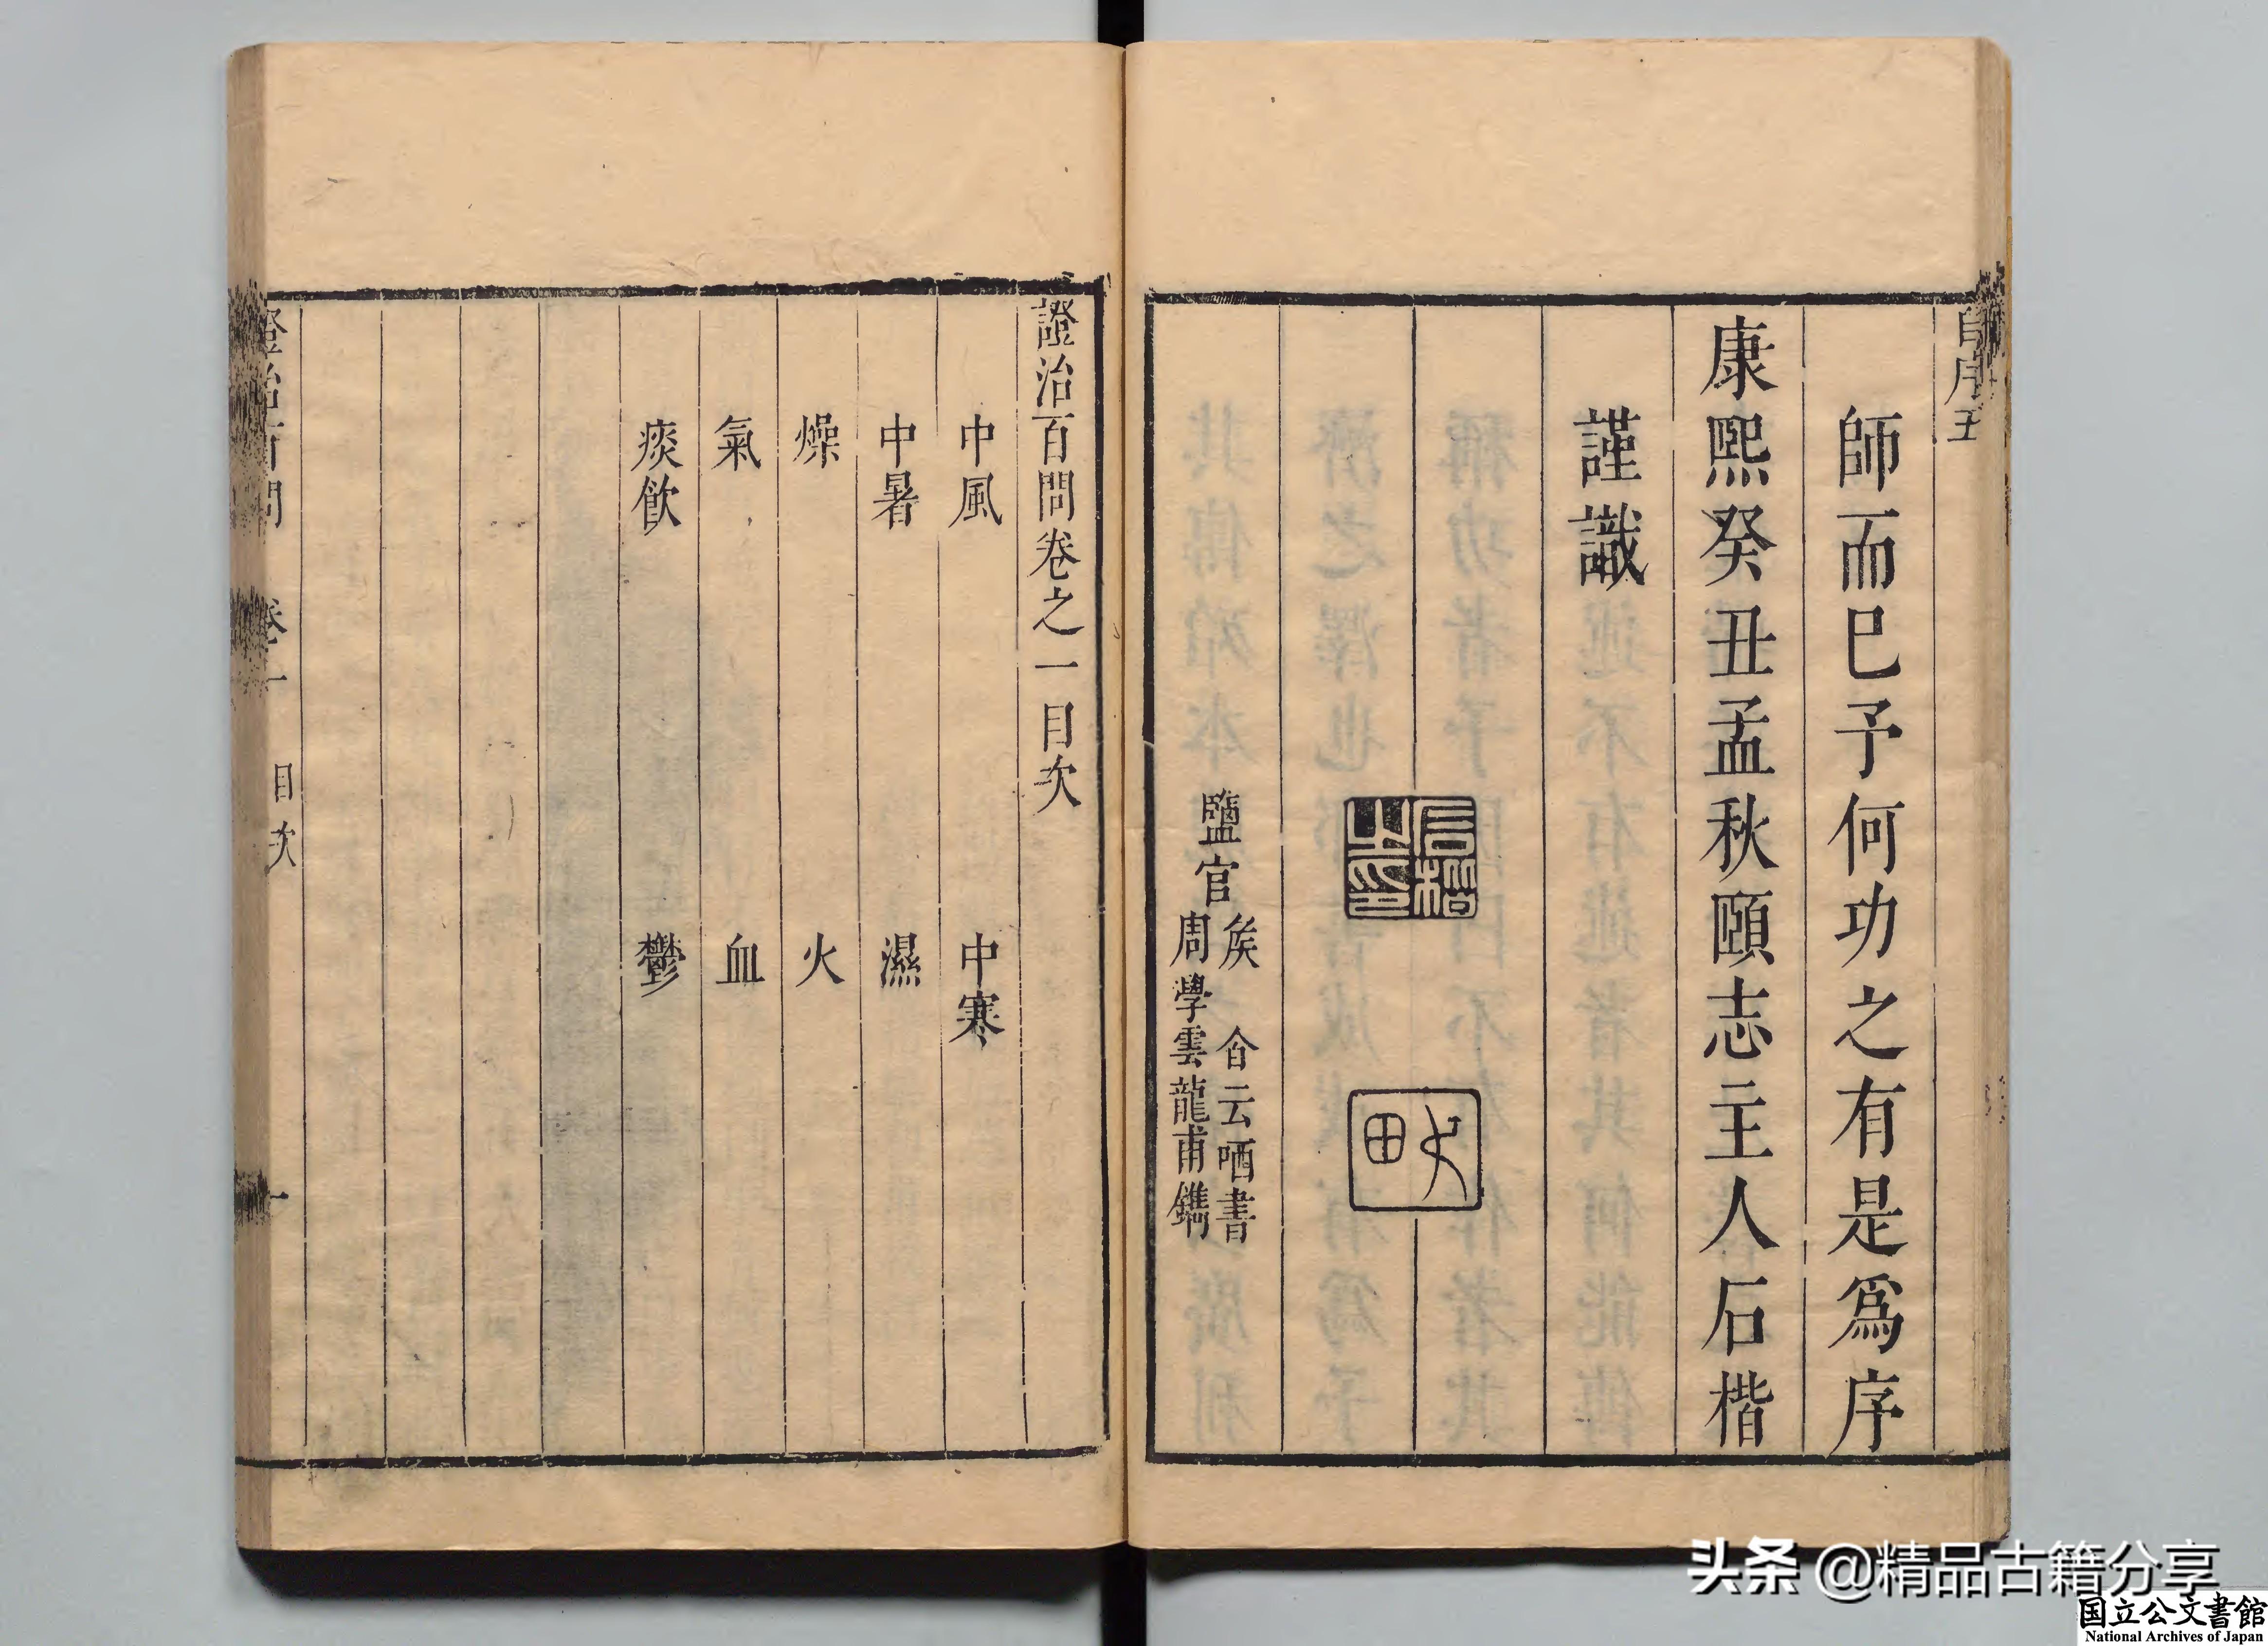 自序 五
師而已予何功之有是爲序
康熙癸丑孟秋頤志主人石楷
謹識
石楷之印
鹽官
矦 㑹云哂書
周學雲龍甫鐫
證治百問卷之一目次
中風 中寒
中暑 濕
燥 火
氣 血
痰飲 鬱
證治百問 卷一 目次 一
头条 @精品古籍分享
国立公文書館
National Archives of Japan